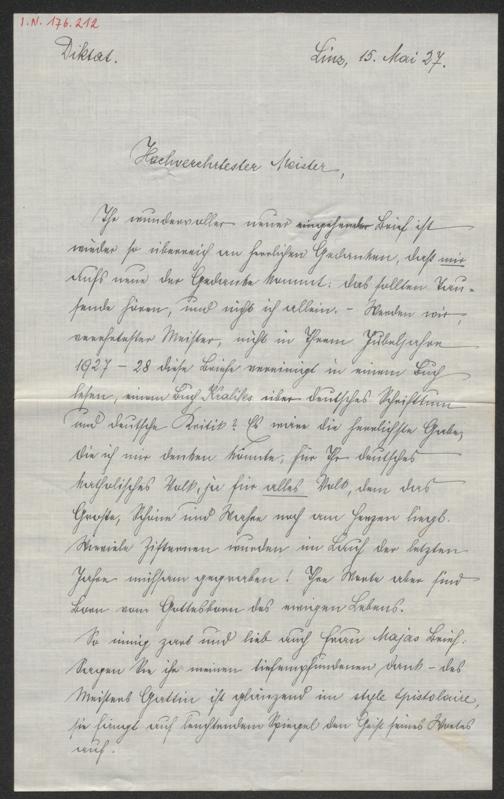 I.N. 176.212
Diktat. Linz, 15. Mai 27.
Hochverehrtester Meister,
Ihr wundervoller neuer eingehender Brief ist
wieder so überreich an herrlichen Gedanken, daß mir
aufs neue der Gedanke kommt: das sollten Tau-
sende hören, und nicht ich allein. – Werden wir,
verehrtester Meister, nicht in Ihrem Jubeljahre
1927 – 28 diese Briefe vereinigt in einem Buch
lesen, einem Buch Kraliks über deutsches Schrifttum
und deutsche Kritik? Es wäre die herrlichste Gabe,
die ich mir denken könnte, für Ihr deutsches
katholisches Volk, ja für alles Volk, dem das
Große, Schöne und Wahre noch am Herzen liegt.
Wieviele Zisternen wurden im Lauf der letzten
Jahre mühsam gegraben! Ihre Werke aber sind
Born vom Gottesborn des ewigen Lebens.
So innig zart und lieb auch Frau Majas Brief.
Sagen Sie ihr meinen tiefempfundenen Dank – des
Meisters Gattin ist glänzend im style épistolaire,
sie fängt auf leuchtendem Spiegel den Geist seines Wortes
auf.